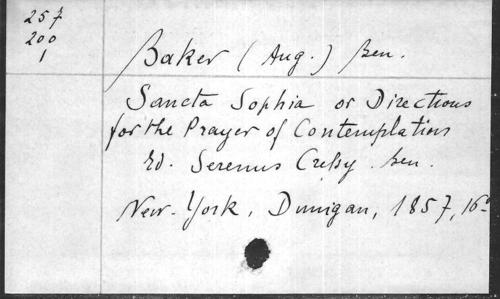 257
200
1
Baker (Aug.) Ben.
Sancta Sophia or Directions
for the Prayer of Contemplation
Ed. Serenus Cressy. ben.
New-York, Dunigan, 1857, 16°